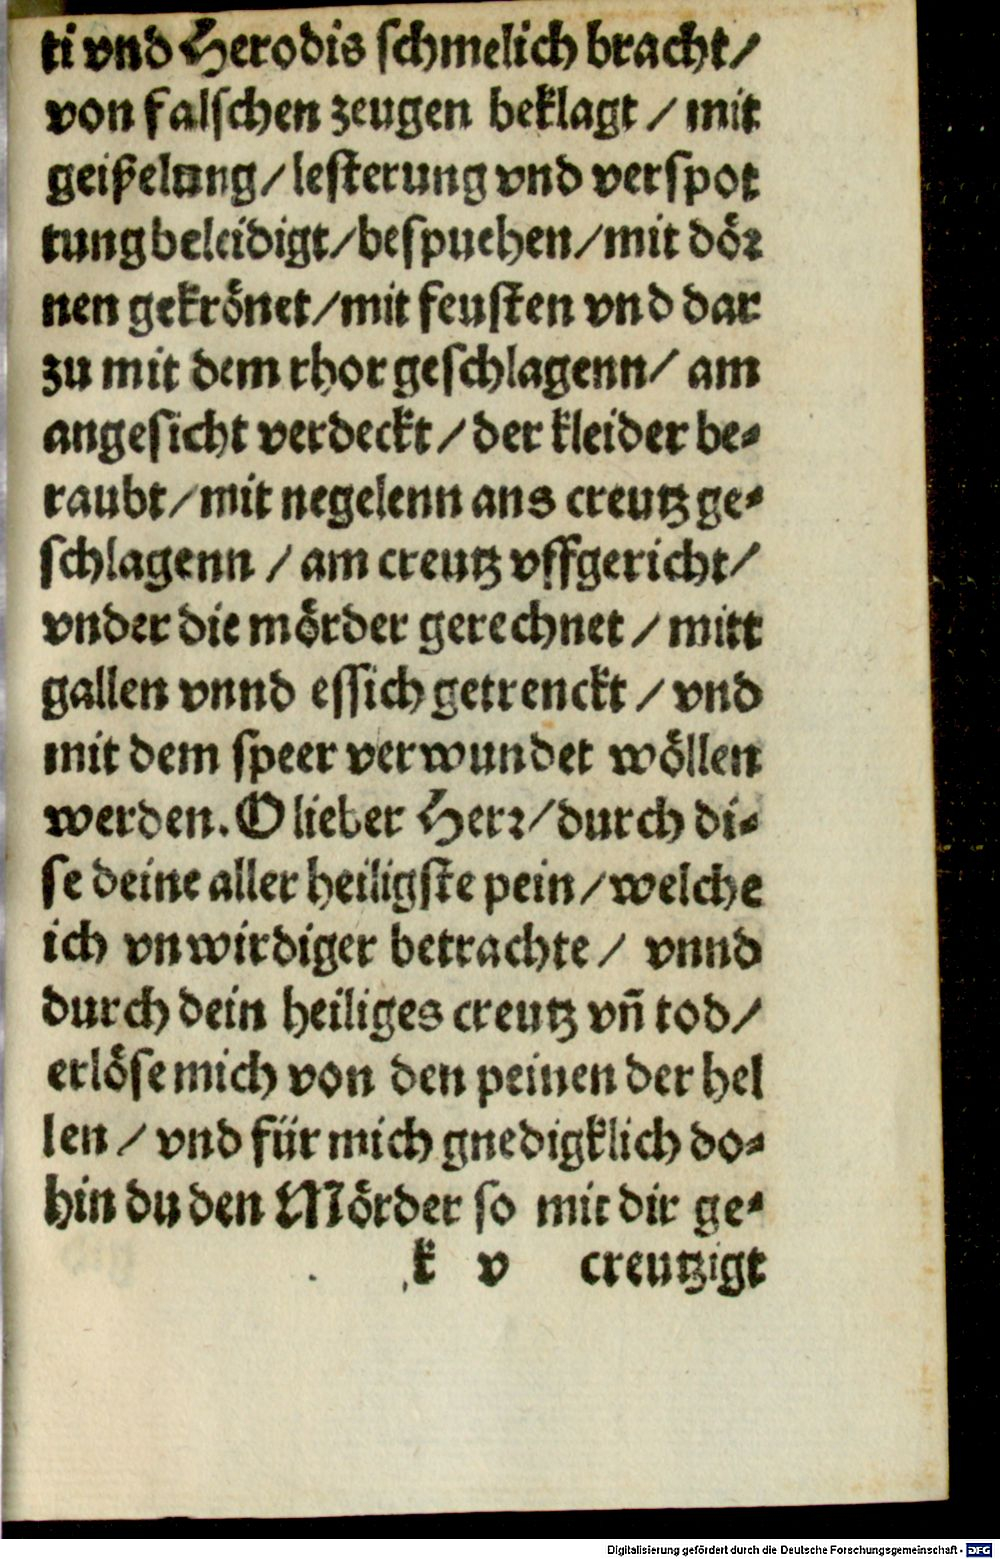 ti vnd Herodis schmelich bracht/
von falschen zeugen beklagt / mit
geißelung/lesterung vnd verspot
tung beleidigt/bespuehen/mit dör
nen gekrönet/mit feusten vnd dar
zu mit dem rhor geschlagenn/ am
angesicht verdeckt/der kleider be-
raubt/mit negelenn ans creutz ge-
schlagenn / am creutz vffgericht/
vnder die mörder gerechnet / mitt
gallen vnnd essich getrenckt / vnd
mit dem speer verwundet wöllen
werden. O lieber Herr/durch di-
se deine aller heiligste pein/welche
ich vnwirdiger betrachte/ vnnd
durch dein heiliges creutz vñ tod/
erlöse mich von den peinen der hel
len / vnd für mich gnedigklich do-
hin du den Mörder so mit dir ge-
k v creutzigt
Digitalisierung gefördert durch die Deutsche Forschungsgemeinschaft - DFG